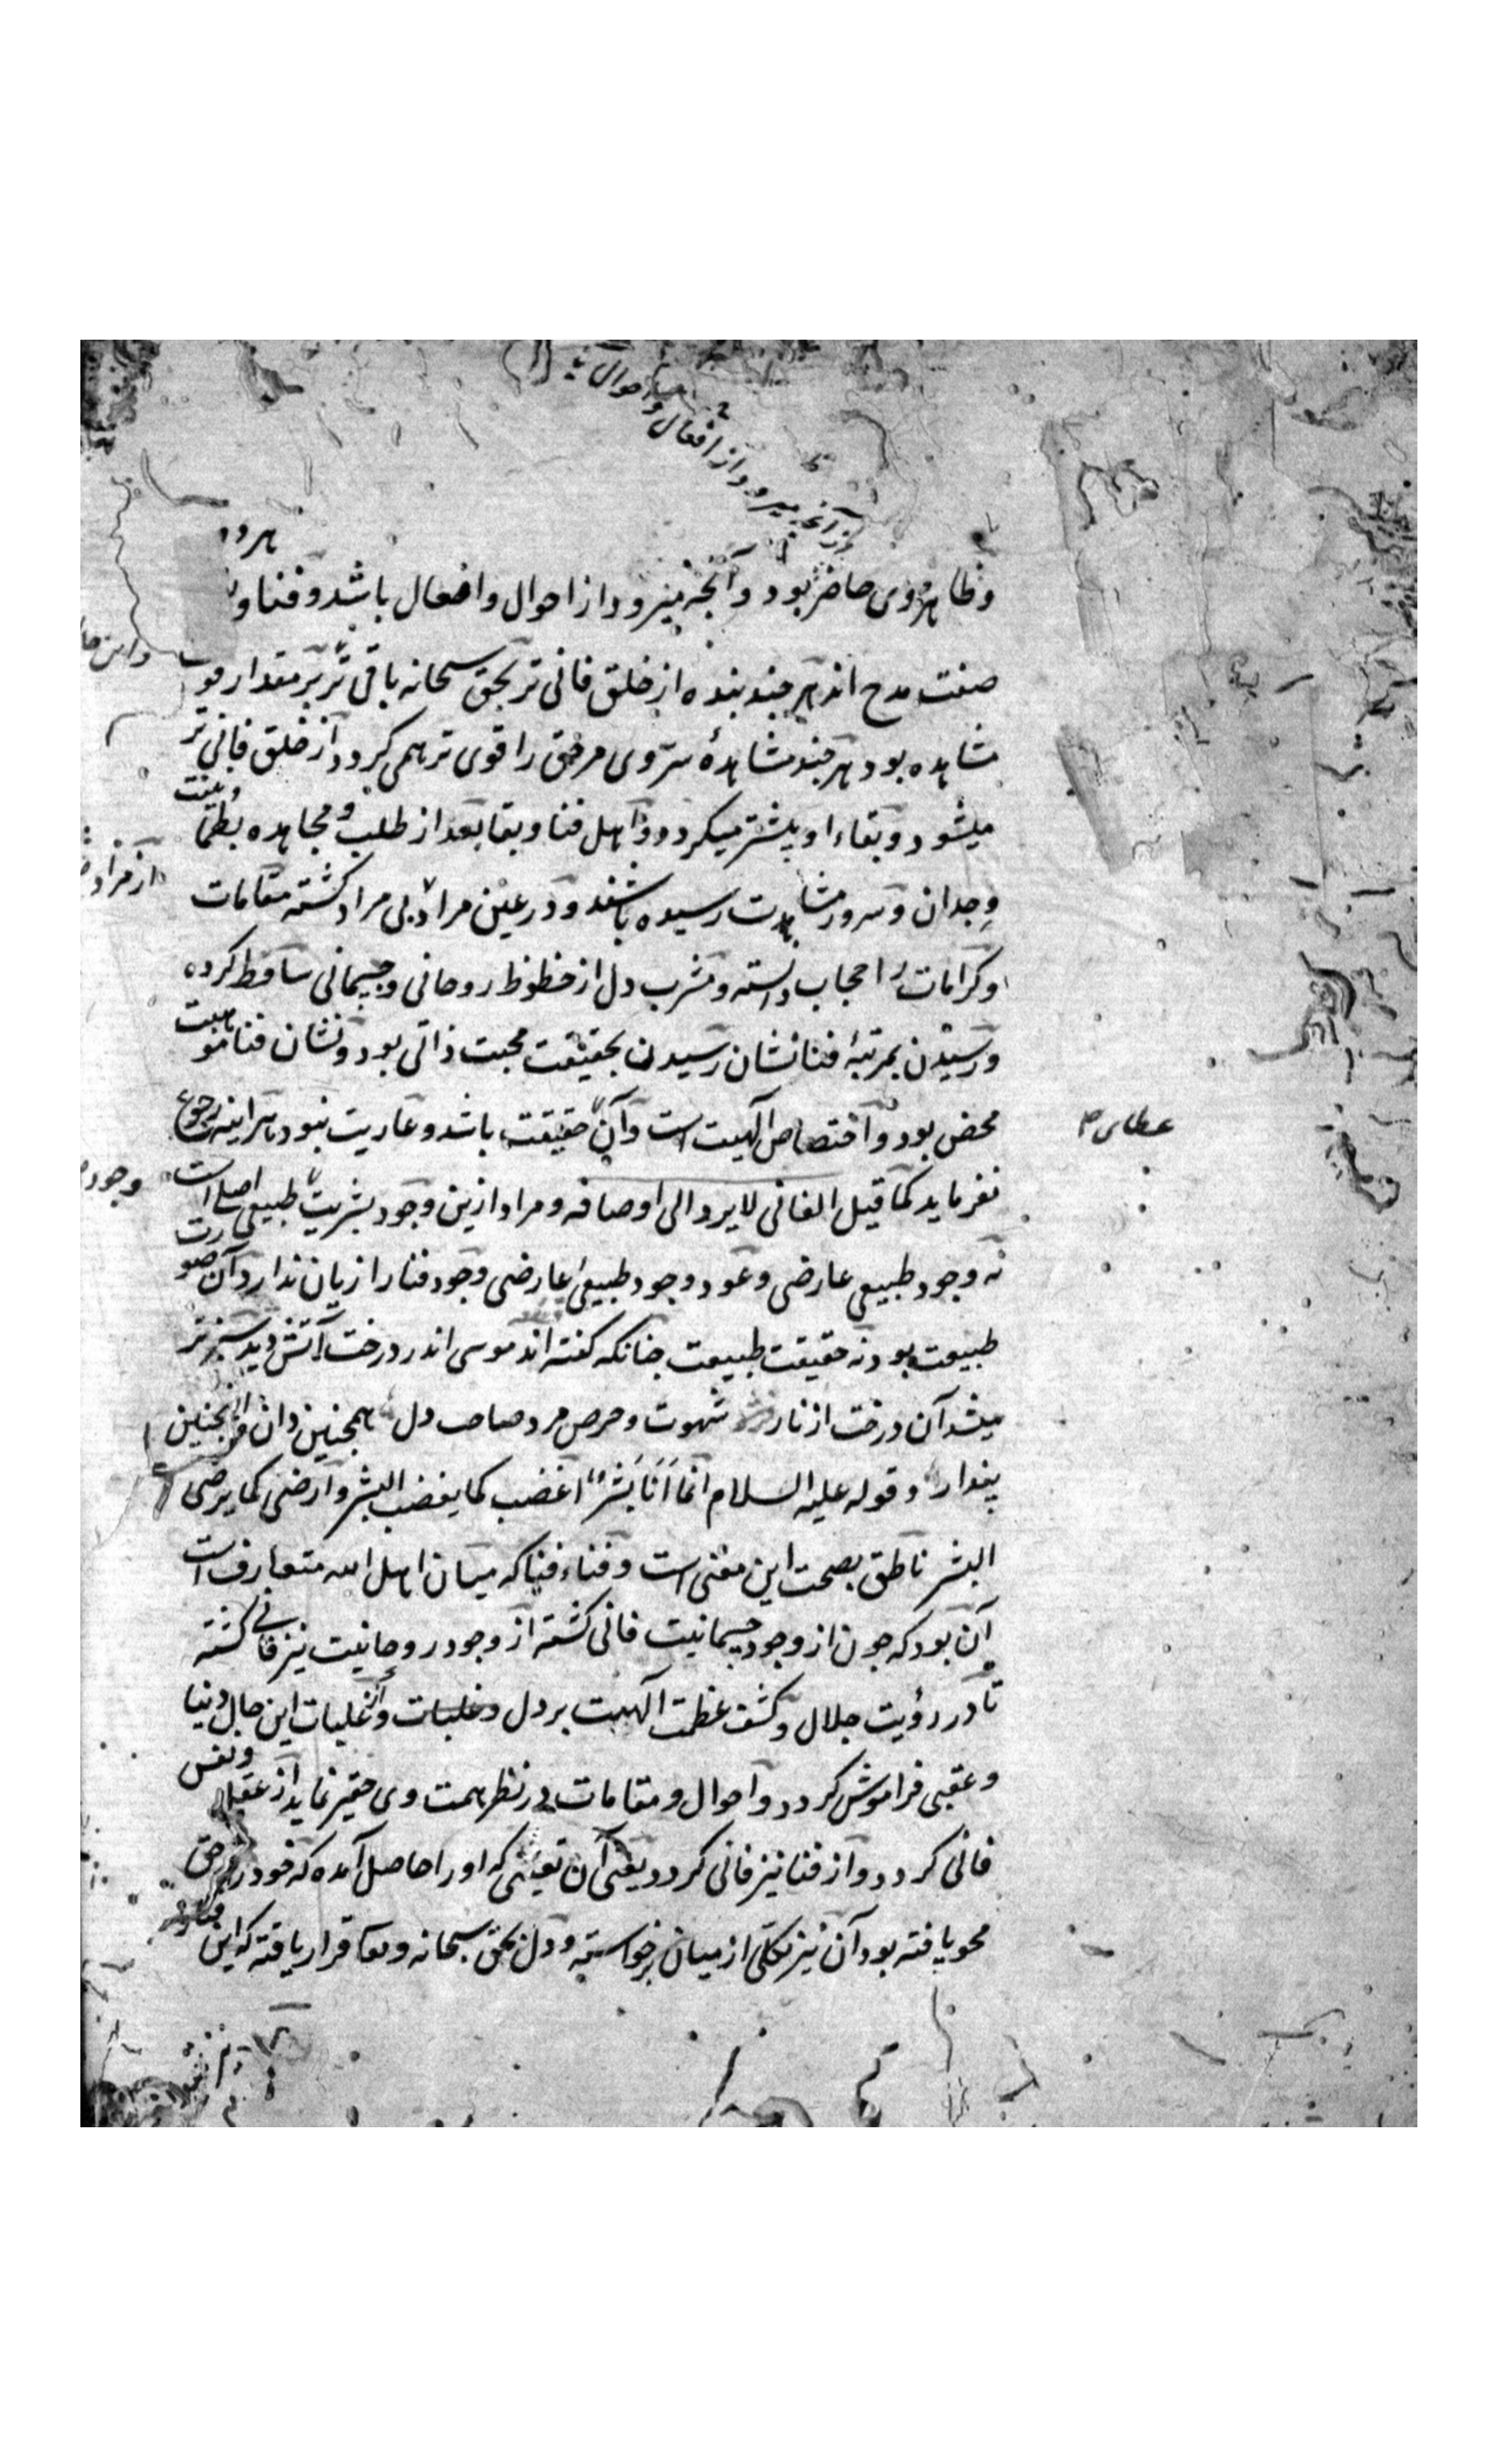 بر آنچه میرود از افعال و احوال
هر دو
و ظاهر وی حاضر بود و آنچه میرود از احوال و افعال باشد و فنا و
صفت مدح اند هر چند بنده از خلق فانی تر بحق سبحانه باقی تر بر مقدار قوت
مشاهده بود هر چند مشاهدهٔ سرّ وی مر حق را قوی تر همی گردد از خلق فانی تر
میشود و بقاء او بیشتر میگردد و اهل فنا و بقا بعد از طلب و مجاهده بطمانینت
وجدان و سرور مشاهدت رسیده باشند و در عین مراد بی مراد گشته مقامات
و کرامات را حجاب دانسته و مشرب دل از حظوظ روحانی و جسمانی ساقط کرده
و رسیدن بمرتبهٔ فنا نشان رسیدن بحقیقت محبت ذاتی بود و نشان فنا موهبت
محض بود و اختصاص الهیت است و آن حقیقت باشد و عاریت نبود هر اینه رجوع
نفرماید کما قیل الفانی لا یرد الی اوصافه و مراد ازین وجود بشریت طبیعی اصلی است
نه وجود طبیعی عارضی و عود وجود طبیعی عارضی وجود فنا را زیان ندارد آن صورت
طبیعت بود نه حقیقت طبیعت چنانکه گفته اند موسی اندر درخت آتش دید سبزتر
میشد آن درخت از نار شهوت و حرص مرد صاحب دل همچنین دان و همچنین
پندار و قوله علیه السلام انما انا بشر اغضب کما یغضب البشر و ارضی کما یرضی
البشر ناطق بصحت این معنی است و فناء فنا که میان اهل الله متعارف است
آن بود که چون از وجود جسمانیت فانی گشته از وجود روحانیت نیز فانی گشته
تا در رؤیت جلال و کشف عظمت الهیت بر دل و غلبات و از غلبات این حال دنیا
و عقبی فراموش گردد و احوال و مقامات در نظر همت وی حقیر نماید از عقل و نفس
فانی گردد و از فنا نیز فانی گردد یعنی آن تعینی که او را حاصل آمده که خود را در حق
محو یافته بود آن نیز بکلی از میان برخواسته و دل بحق سبحانه و تعا قرار یافته که این
عطای
و این
وجود